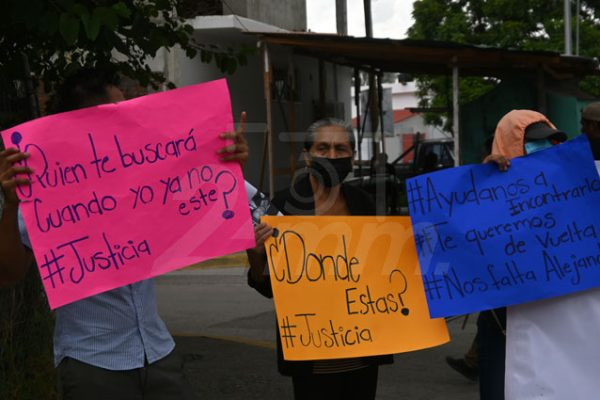 ¿Quien te buscará
Cuando yo ya no
este?
#Justicia
¿Donde
Estas?
#Justicia
#Ayudanos a
Incontrarlo
#Te queremos
de Vuelta
#Nos falta Alejand